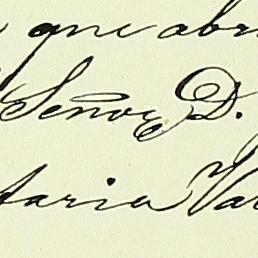 que abr
Señor D.
taria Va